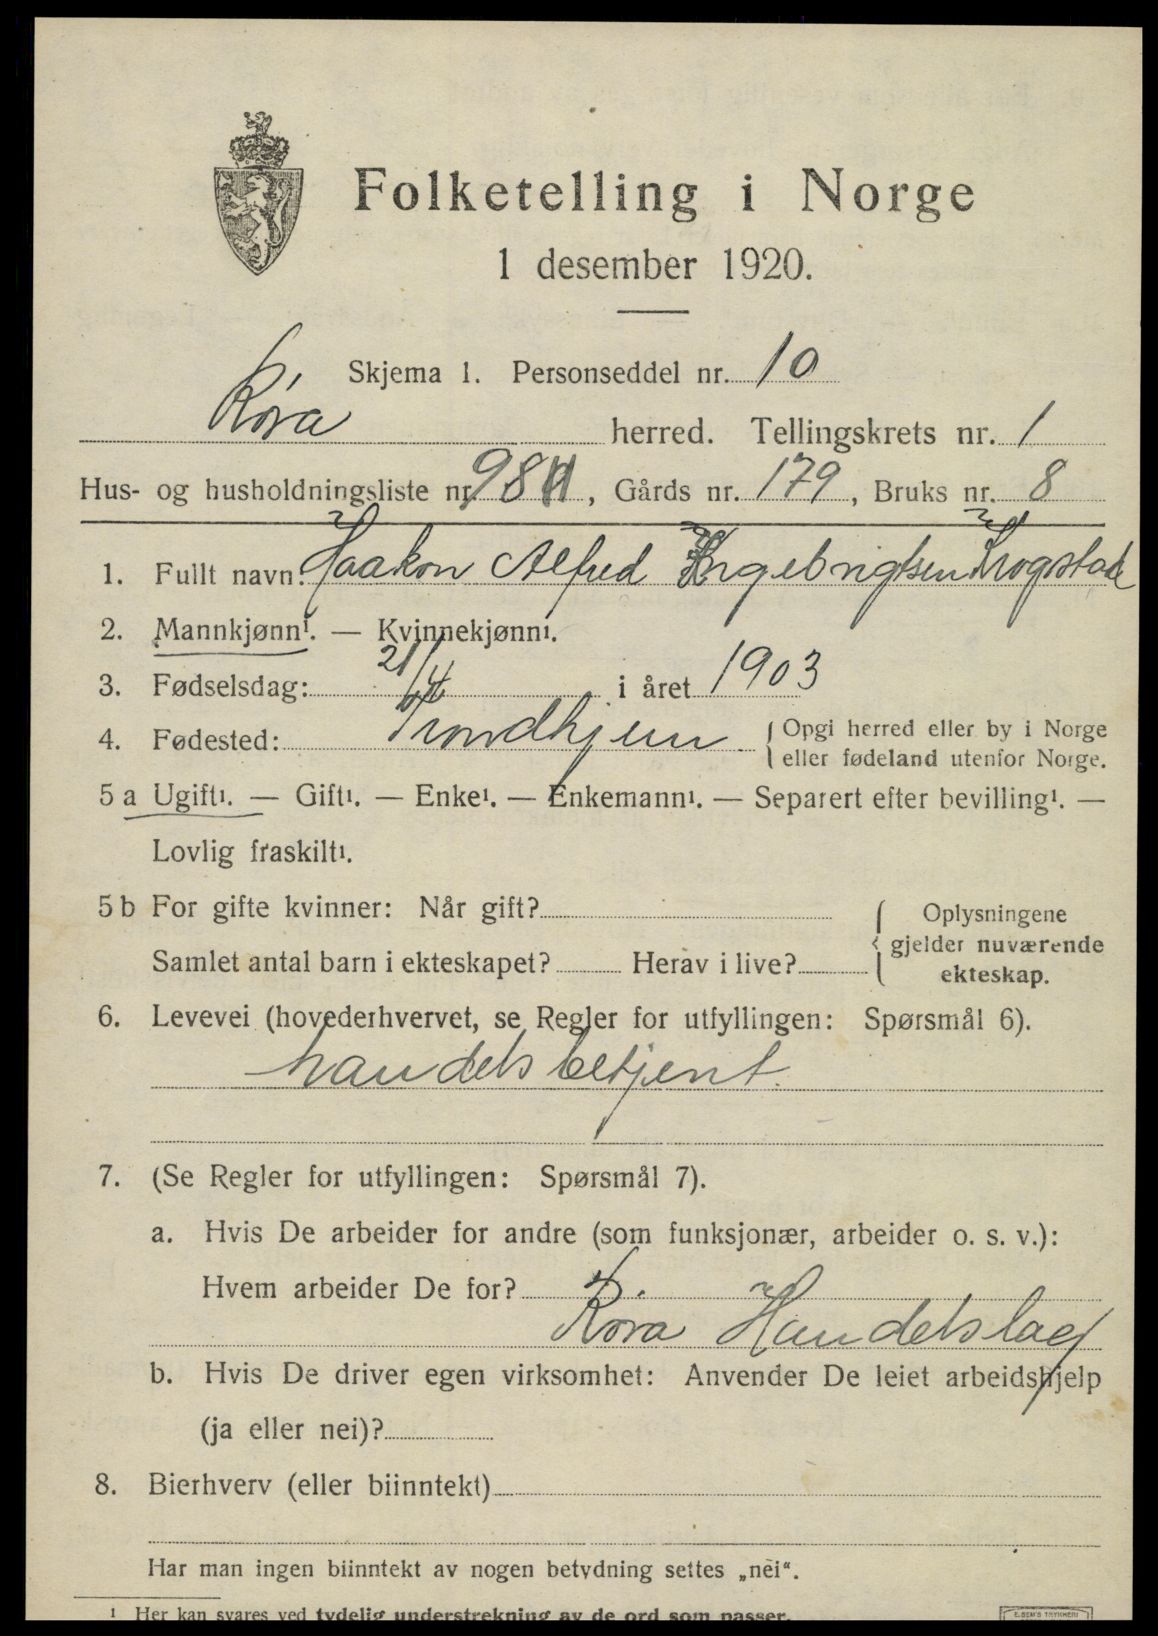 Folketelling i Norge
1 desember 1920.
Skjema 1. Personseddel nr. 10
Røra herred. Tellingskrets nr. 1
Hus- og husholdningsliste nr. 98, Gårds nr. 179, Bruks nr. 8
1. Fullt navn: Haakon Alfred Ingebrigtsen Krogstad
2. Mannkjønn¹. — Kvinnekjønn¹.
3. Fødselsdag: 21/4 i året 1903
4. Fødested: Trondhjem { Opgi herred eller by i Norge
eller fødeland utenfor Norge.
5 a Ugift¹. — Gift¹. — Enke¹. — Enkemann¹. — Separert efter bevilling¹. —
Lovlig fraskilt¹.
5 b For gifte kvinner: Når gift?
Samlet antal barn i ekteskapet? Herav i live?
{ Oplysningene
gjelder nuværende
ekteskap.
6. Levevei (hovederhvervet, se Regler for utfyllingen: Spørsmål 6).
handelsbetjent.
7. (Se Regler for utfyllingen: Spørsmål 7).
a. Hvis De arbeider for andre (som funksjonær, arbeider o. s. v.):
Hvem arbeider De for?
Røra Handelslag
b. Hvis De driver egen virksomhet: Anvender De leiet arbeidshjelp
(ja eller nei)?
8. Bierhverv (eller biinntekt)
Har man ingen biinntekt av nogen betydning settes „nei“.
¹ Her kan svares ved tydelig understrekning av de ord som passer.